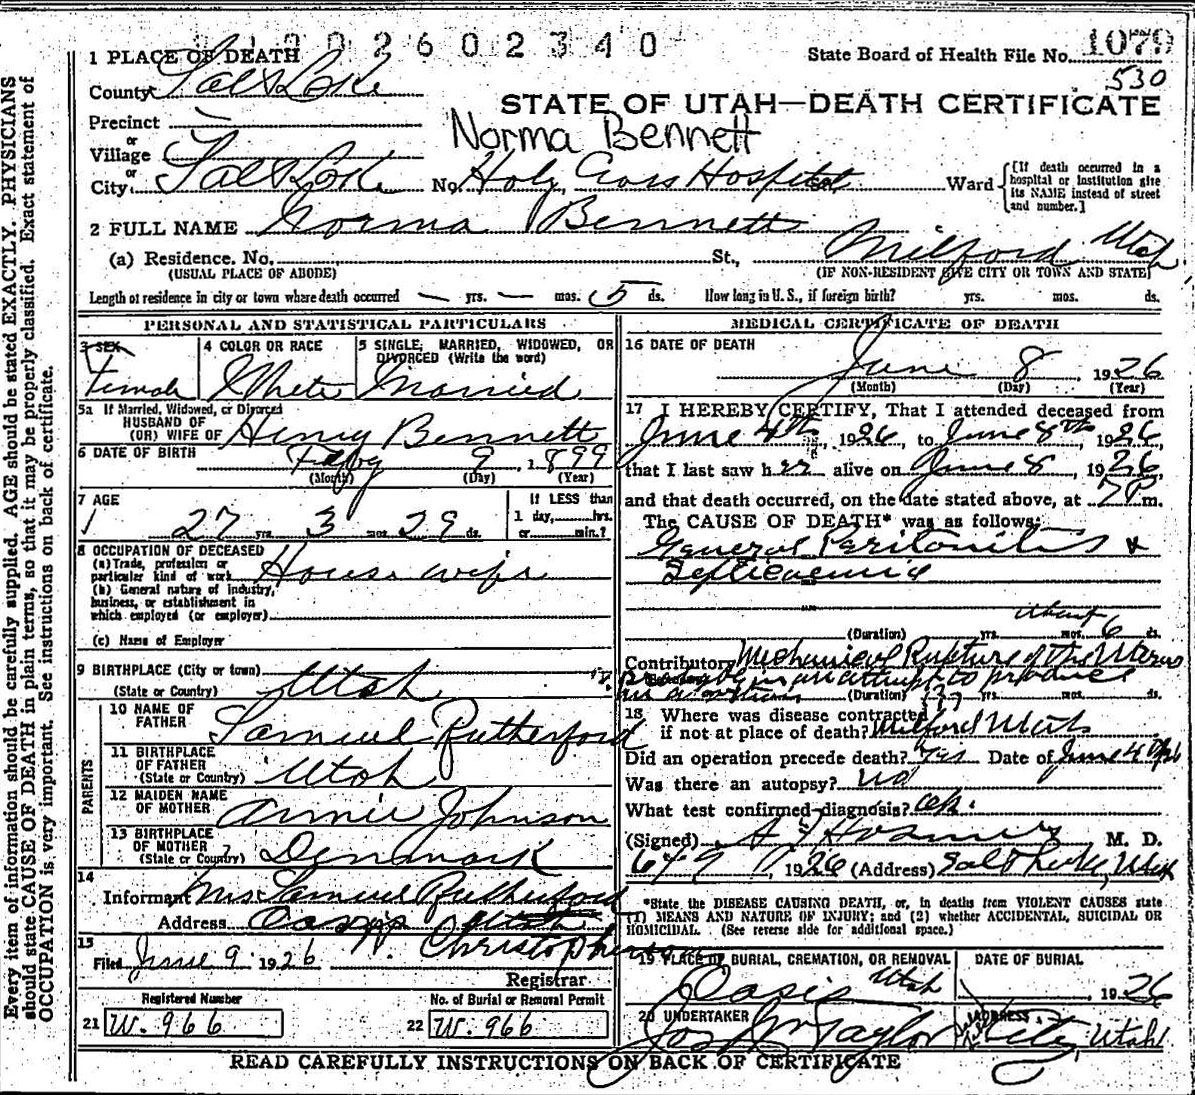 2 6 0 2 3 4 0
1 PLACE OF DEATH
State Board of Health File No. 1079
530
County Salt Lake
STATE OF UTAH—DEATH CERTIFICATE
Precinct
Norma Bennett
or
Village
or
City. Salt Lake No. Holy Cross Hospital St., Ward
{[If death occurred in a hospital or institution give its NAME instead of street and number.]
2 FULL NAME Norma Bennett
(a) Residence. No. St., Milford Utah
(USUAL PLACE OF ABODE) (IF NON-RESIDENT GIVE CITY OR TOWN AND STATE)
Length of residence in city or town where death occurred — yrs. — mos. 5 ds. How long in U.S., if foreign birth? yrs. mos. ds.
PERSONAL AND STATISTICAL PARTICULARS
3 SEX
Female
4 COLOR OR RACE
White
5 SINGLE, MARRIED, WIDOWED, OR DIVORCED (Write the word)
Married
5a If Married, Widowed, or Divorced
HUSBAND OF
(OR) WIFE OF Henry Bennett
6 DATE OF BIRTH Feby 9, 1899
(Month) (Day) (Year)
7 AGE
27 yrs. 3 mos. 29 ds.
If LESS than
1 day, hrs.
or min.?
8 OCCUPATION OF DECEASED
(a) Trade, profession or
particular kind of work Housewife
(b) General nature of industry,
business, or establishment in
which employed (or employer)
(c) Name of Employer
9 BIRTHPLACE (City or town)
(State or Country) Utah
PARENTS
10 NAME OF
FATHER Samuel Rutherford
11 BIRTHPLACE
OF FATHER
(State or Country) Utah
12 MAIDEN NAME
OF MOTHER Annie Johnson
13 BIRTHPLACE
OF MOTHER
(State or Country) Denmark
14
Informant Mrs Samuel Rutherford
Address Oasis Utah
15
Filed June 9 1926 W. Christopherson
Registrar
Registered Number
21 W. 966
No. of Burial or Removal Permit
22 W. 966
MEDICAL CERTIFICATE OF DEATH
16 DATE OF DEATH
June 8, 1926
(Month) (Day) (Year)
17 I HEREBY CERTIFY, That I attended deceased from
June 4th, 1926, to June 8th, 1926
that I last saw her alive on June 8, 1926,
and that death occurred, on the date stated above, at 7 P m.
The CAUSE OF DEATH* was as follows:
General Peritonitis &
Septicaemia
about
(Duration) yrs. mos. 6 ds.
Contributory Mechanical Rupture of the Uterus
in an attempt to produce
an abortion (Duration) yrs. mos. ds.
18 Where was disease contracted
if not at place of death? Milford Utah
Did an operation precede death? Yes Date of June 4
Was there an autopsy? no
What test confirmed diagnosis?
(Signed) M. D.
6/9, 1926 (Address) Salt Lake, Utah
*State the DISEASE CAUSING DEATH, or, in deaths from VIOLENT CAUSES state
(1) MEANS AND NATURE OF INJURY; and (2) whether ACCIDENTAL, SUICIDAL OR
HOMICIDAL. (See reverse side for additional space.)
19 PLACE OF BURIAL, CREMATION, OR REMOVAL
Oasis Utah
DATE OF BURIAL
1926
20 UNDERTAKER
Jos Wm Taylor
ADDRESS
City, Utah
READ CAREFULLY INSTRUCTIONS ON BACK OF CERTIFICATE
Every item of information should be carefully supplied. AGE should be stated EXACTLY. PHYSICIANS
should state CAUSE OF DEATH in plain terms, so that it may be properly classified. Exact statement of
OCCUPATION is very important. See instructions on back of certificate.